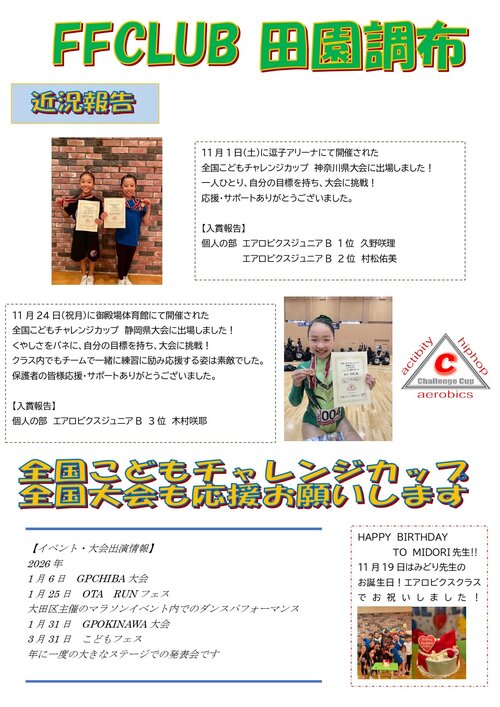 FFCLUB 田園調布
近況報告
11月1日(土)に逗子アリーナにて開催された
全国こどもチャレンジカップ 神奈川県大会に出場しました！
一人ひとり、自分の目標を持ち、大会に挑戦！
応援・サポートありがとうございました。
【入賞報告】
個人の部 エアロビクスジュニアB 1位 久野咲理
エアロビクスジュニアB 2位 村松佑美
11月24日(祝月)に御殿場体育館にて開催された
全国こどもチャレンジカップ 静岡県大会に出場しました！
くやしさをバネに、自分の目標を持ち、大会に挑戦！
クラス内でもチームで一緒に練習に励み応援する姿は素敵でした。
保護者の皆様応援・サポートありがとうございました。
【入賞報告】
個人の部 エアロビクスジュニアB 3位 木村咲耶
004
actibity
hiphop
C
Challenge Cup
aerobics
全国こどもチャレンジカップ
全国大会も応援お願いします
【イベント・大会出演情報】
2026年
1月6日 GPCHIBA大会
1月25日 OTA RUNフェス
大田区主催のマラソンイベント内でのダンスパフォーマンス
1月31日 GPOKINAWA大会
3月31日 こどもフェス
年に一度の大きなステージでの発表会です
HAPPY BIRTHDAY
TO MIDORI先生!!
11月19日はみどり先生の
お誕生日！エアロビクスクラス
でお祝いしました！